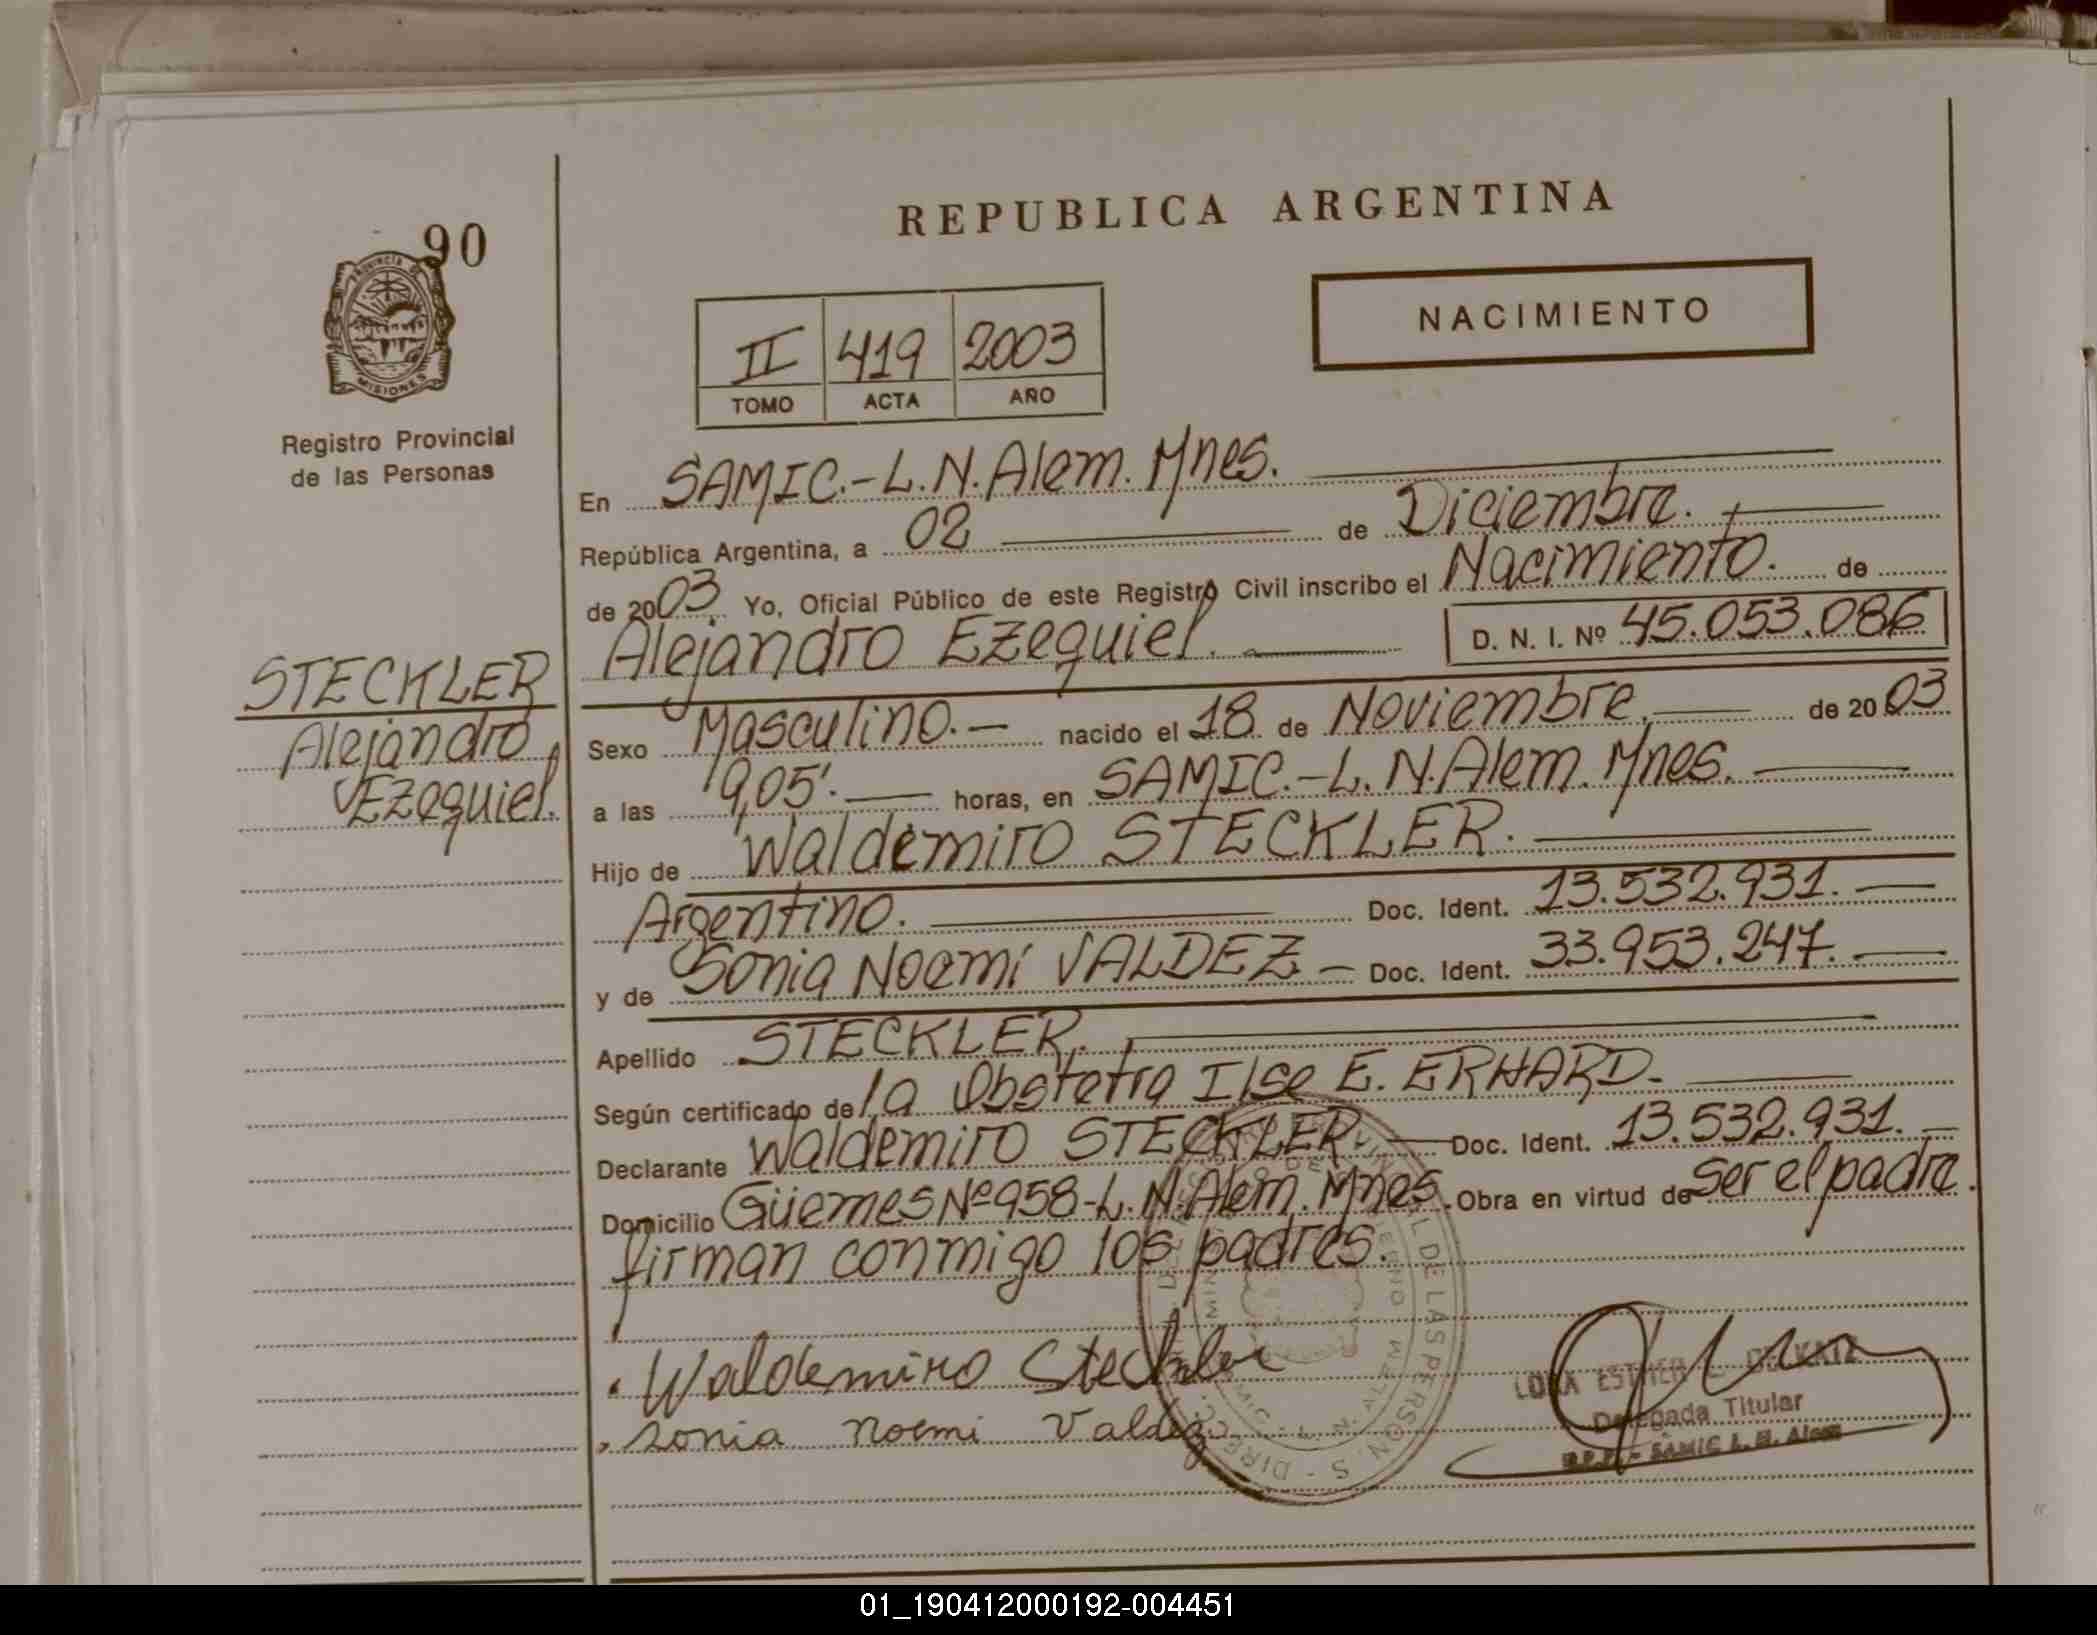 REPUBLICA ARGENTINA
90
PROVINCIA DE
MISIONES
Registro Provincial
de las Personas
II 419 2003
TOMO ACTA AÑO
NACIMIENTO
En SAMIC.-L.N.Alem.Mnes.
República Argentina, a 02 de Diciembre.
de 2003 Yo, Oficial Público de este Registro Civil inscribo el Nacimiento. de
Alejandro Ezequiel. D. N. I. Nº 45.053.086
STECKLER
Alejandro
Ezequiel.
Sexo Masculino.- nacido el 18 de Noviembre. de 2003
a las 9,05'. horas, en SAMIC.-L.N.Alem.Mnes.
Hijo de Waldemiro STECKLER.
Argentino. Doc. Ident. 13.532.931.
y de Sonia Noemí VALDEZ - Doc. Ident. 33.953.247.
Apellido STECKLER.
Según certificado de la Obstetra Ilse E. ERHARD.
Declarante Waldemiro STECKLER Doc. Ident. 13.532.931.
Domicilio Güemes Nº 958-L.N.Alem.Mnes. Obra en virtud de ser el padre.
firman conmigo los padres.
Waldemiro Steckler
Sonia Noemi Valdez
ESTHER
Delegada Titular
SAMIC L. N. Alem
01_190412000192-004451